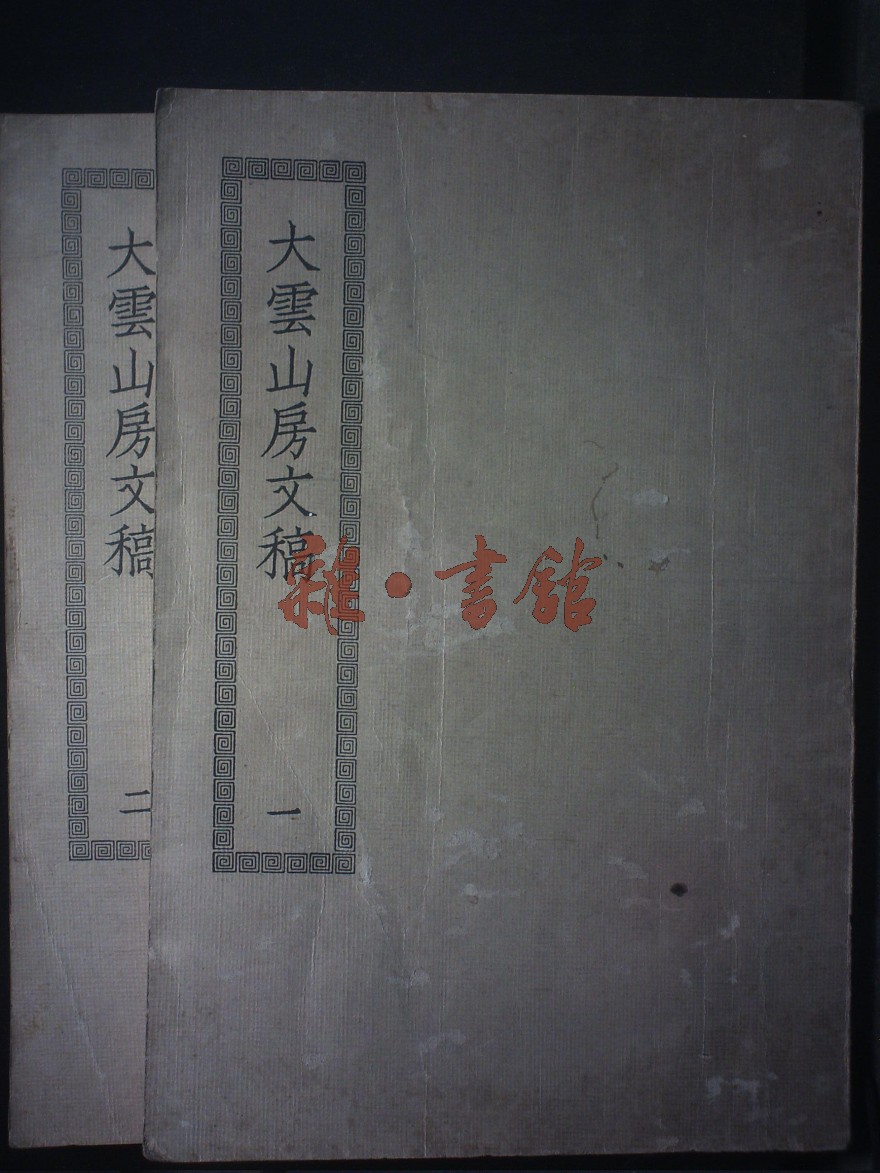 大雲山房文稿
一
大雲山房文稿
二
雜·書館